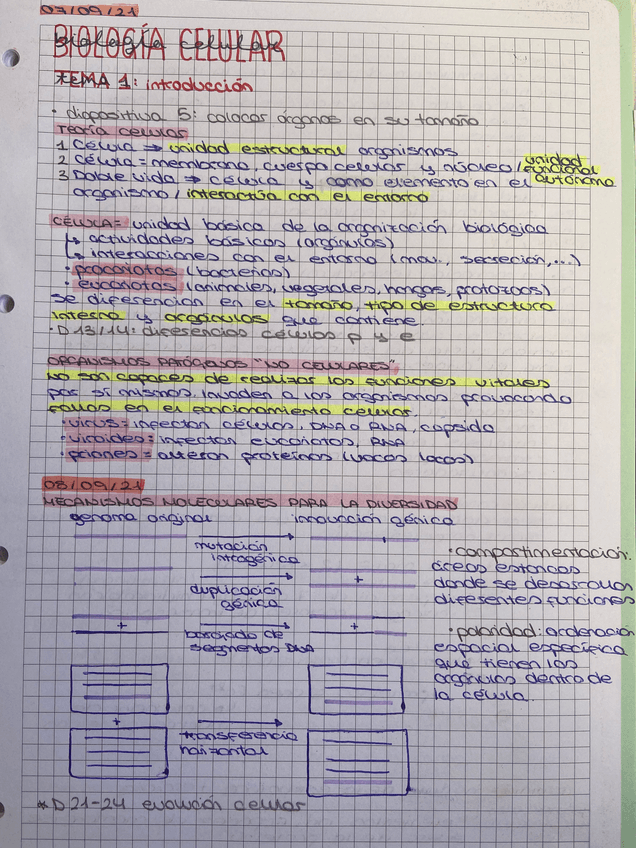 07/09/21
BIOLOGÍA CELULAR
TEMA 1: introducción
· diapositiva 5: colocar órganos en su tamaño
Teoría celular
1 Célula → unidad estructural organismos
2 Célula = membrana, cuerpo celular y núcleo / unidad funcional autónoma
3 Doble vida → célula y como elemento en el
organismo / interactúa con el entorno
CÉLULA = unidad básica de la organización biológica
↳ actividades básicas (orgánulos)
↳ interacciones con el entorno (mov., secreción,...)
· procariotas (bacterias)
· eucariotas (animales, vegetales, hongos, protozoos)
se diferencian en el tamaño, tipo de estructura
interna y orgánulos que contiene.
· D 13/14: diferencias células p y e
ORGANISMOS PATÓGENOS "NO CELULARES"
No son capaces de realizar las funciones vitales
por sí mismos, invaden a los organismos provocando
fallos en el funcionamiento celular
· virus = infectan células, DNA o RNA, cápsida
· viroides = infectan eucariotas, RNA
· priones = alteran proteínas (vacas locas)
08/09/21
MECANISMOS MOLECULARES PARA LA DIVERSIDAD
genoma original innovación génica
mutación
intragénica
+
duplicación
génica
+ +
barajado de
segmentos DNA
+
transferencia
horizontal
· compartimentación:
áreas estancas
donde se desarrollan
diferentes funciones
· polaridad: ordenación
espacial específica
que tienen los
orgánulos dentro de
la célula.
* D 21-24 evolución celular